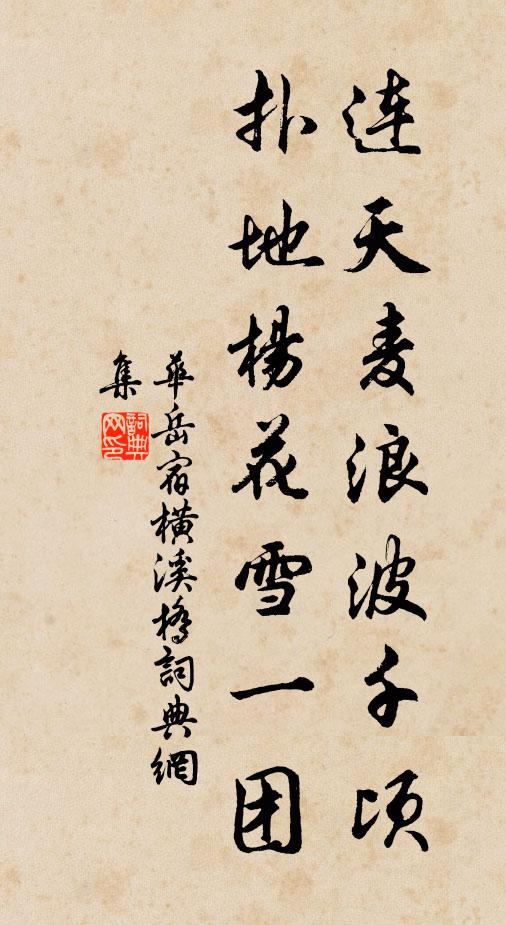 连天麦浪波千顷
扑地杨花雪一团
華岳宿横溪橋詞典網
集
詞典
网印